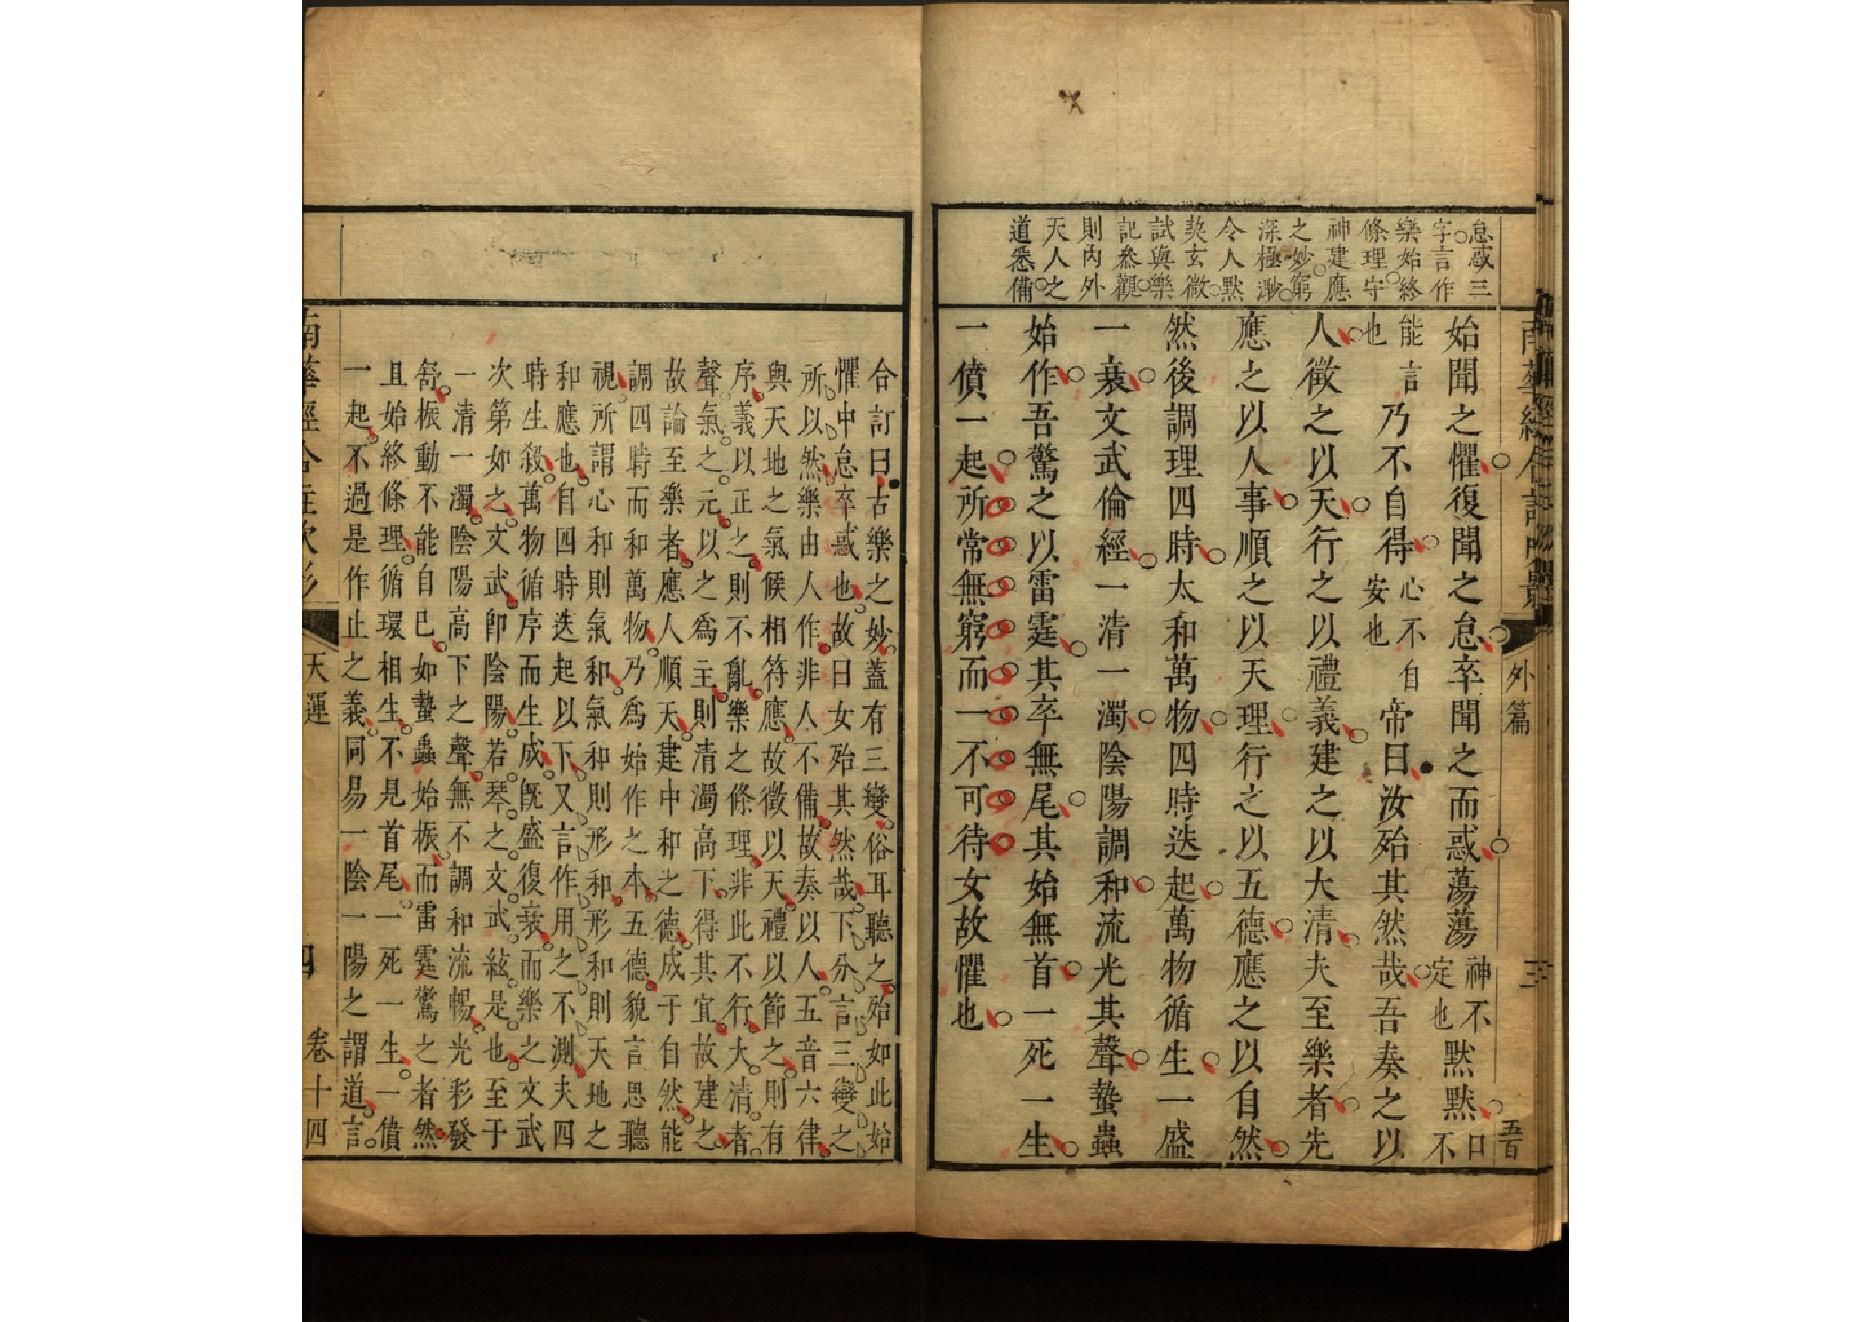 怠惑三
字言作
樂始終
條理守
神建應
之妙窮
深極渺
令人黙
契玄微
試與樂
記叅觀
則內外
天人之
道悉備
外篇
三
五百
始聞之懼復聞之怠卒聞之而惑蕩蕩神不定也默默口不
能言也乃不自得心不自安也帝曰汝殆其然哉吾奏之以
人徵之以天行之以禮義建之以大清夫至樂者先
應之以人事順之以天理行之以五德應之以自然
然後調理四時太和萬物四時迭起萬物循生一盛
一衰文武倫經一清一濁陰陽調和流光其聲蟄蟲
始作吾驚之以雷霆其卒無尾其始無首一死一生
一僨一起所常無窮而一不可待女故懼也
合訂曰古樂之妙蓋有三變俗耳聽之殆如此始
懼中怠卒惑也故曰女殆其然哉下分言三變之
所以然樂由人作非人不備故奏以人五音六律
與天地之氣候相符應故徵以天禮以節之則有
序義以正之則不亂樂之條理非此不行大清者
聲氣之元以之爲主則清濁高下得其宜故建之
故論至樂者應人順天建中和之德成于自然能
調四時而和萬物乃爲始作之本五德貌言思聽
視所謂心和則氣和氣和則形和形和則天地之
和應也自四時迭起以下又言作用之不測夫四
時生殺萬物循序而生成旣盛復衰而樂之文武
次第如之文武卽陰陽若琴之文武絃是也至于
一清一濁陰陽高下之聲無不調和流暢光彩發
舒振動不能自已如蟄蟲始振而雷霆驚之者然
且始終條理循環相生不見首尾一死一生一僨
一起不過是作止之義同易一陰一陽之謂道言
天運
四
卷十四